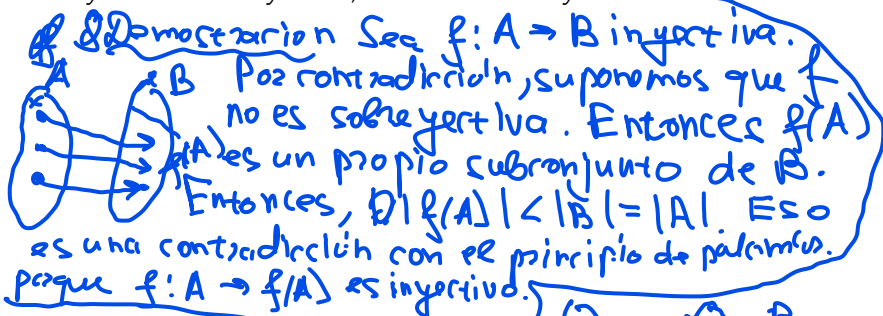 Demostracion Sea f: A → B inyectiva.
A B Por contradicción, suponemos que f
no es sobreyectiva. Entonces f(A)
f(A) es un propio subconjunto de B.
Entonces, |f(A)| < |B| = |A|. Eso
es una contradicción con el principio de palomas.
porque f: A → f(A) es inyectiva.